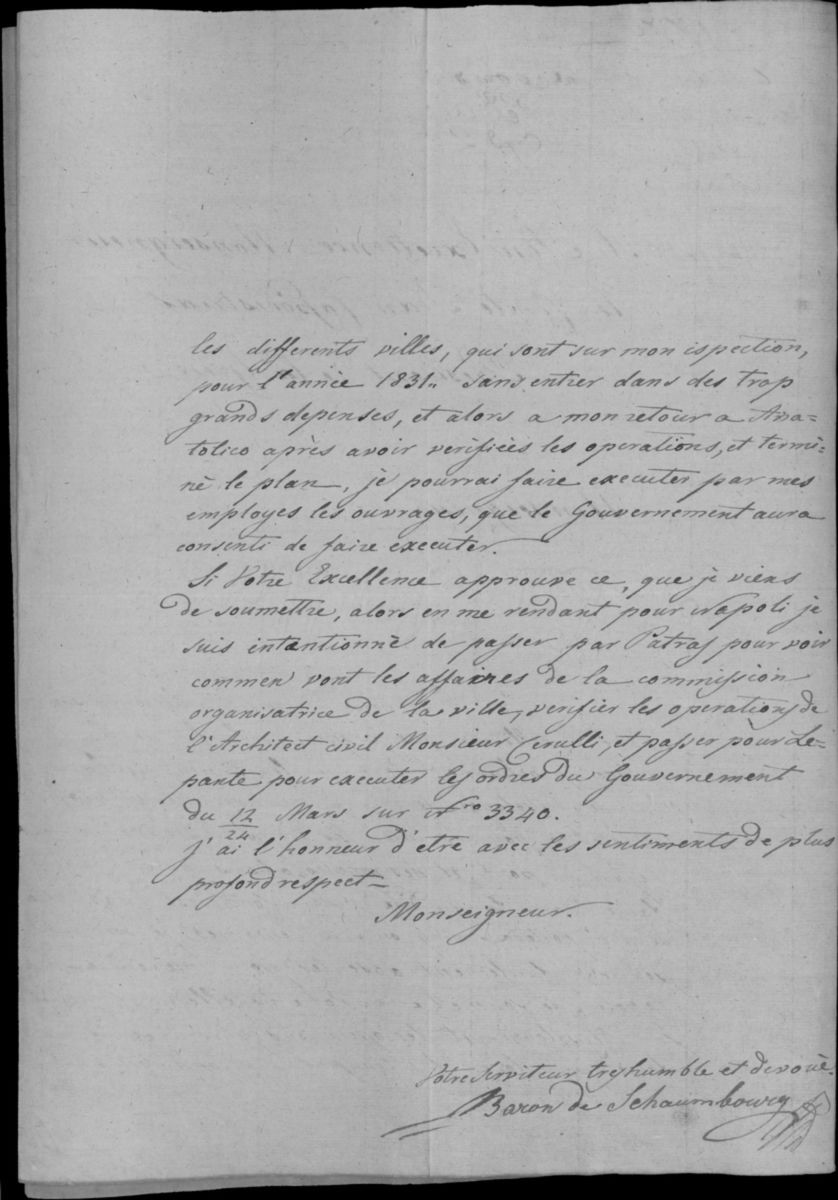 les differents villes, qui sont sur mon ispection,
pour l'année 1831. sans entrer dans des trop
grands depenses, et alors a mon retour a Ana-
tolico après avoir verifiées les operations, et termi-
nè le plan, je pourrai faire executer par mes
employes les ouvrages, que le Gouvernement aura
consenti de faire executer.
Si Votre Excellence approuve ce, que je viens
de soumettre, alors en me rendant pour Napoli je
suis intentionnè de passer par Patras pour voir
commen vont les affaires de la commission
organisatrice de la ville, verifier les operations de
l'Architect civil Monsieur Cerulli, et passer pour Le-
pante pour executer les ordres du Gouvernement
du 12/24 Mars sur Nro 3340.
J'ai l'honneur d'etre avec les sentiments de plus
profond respect
Monseigneur.
Votre Serviteur tres humble et devouè.
Baron de Schaumbourg